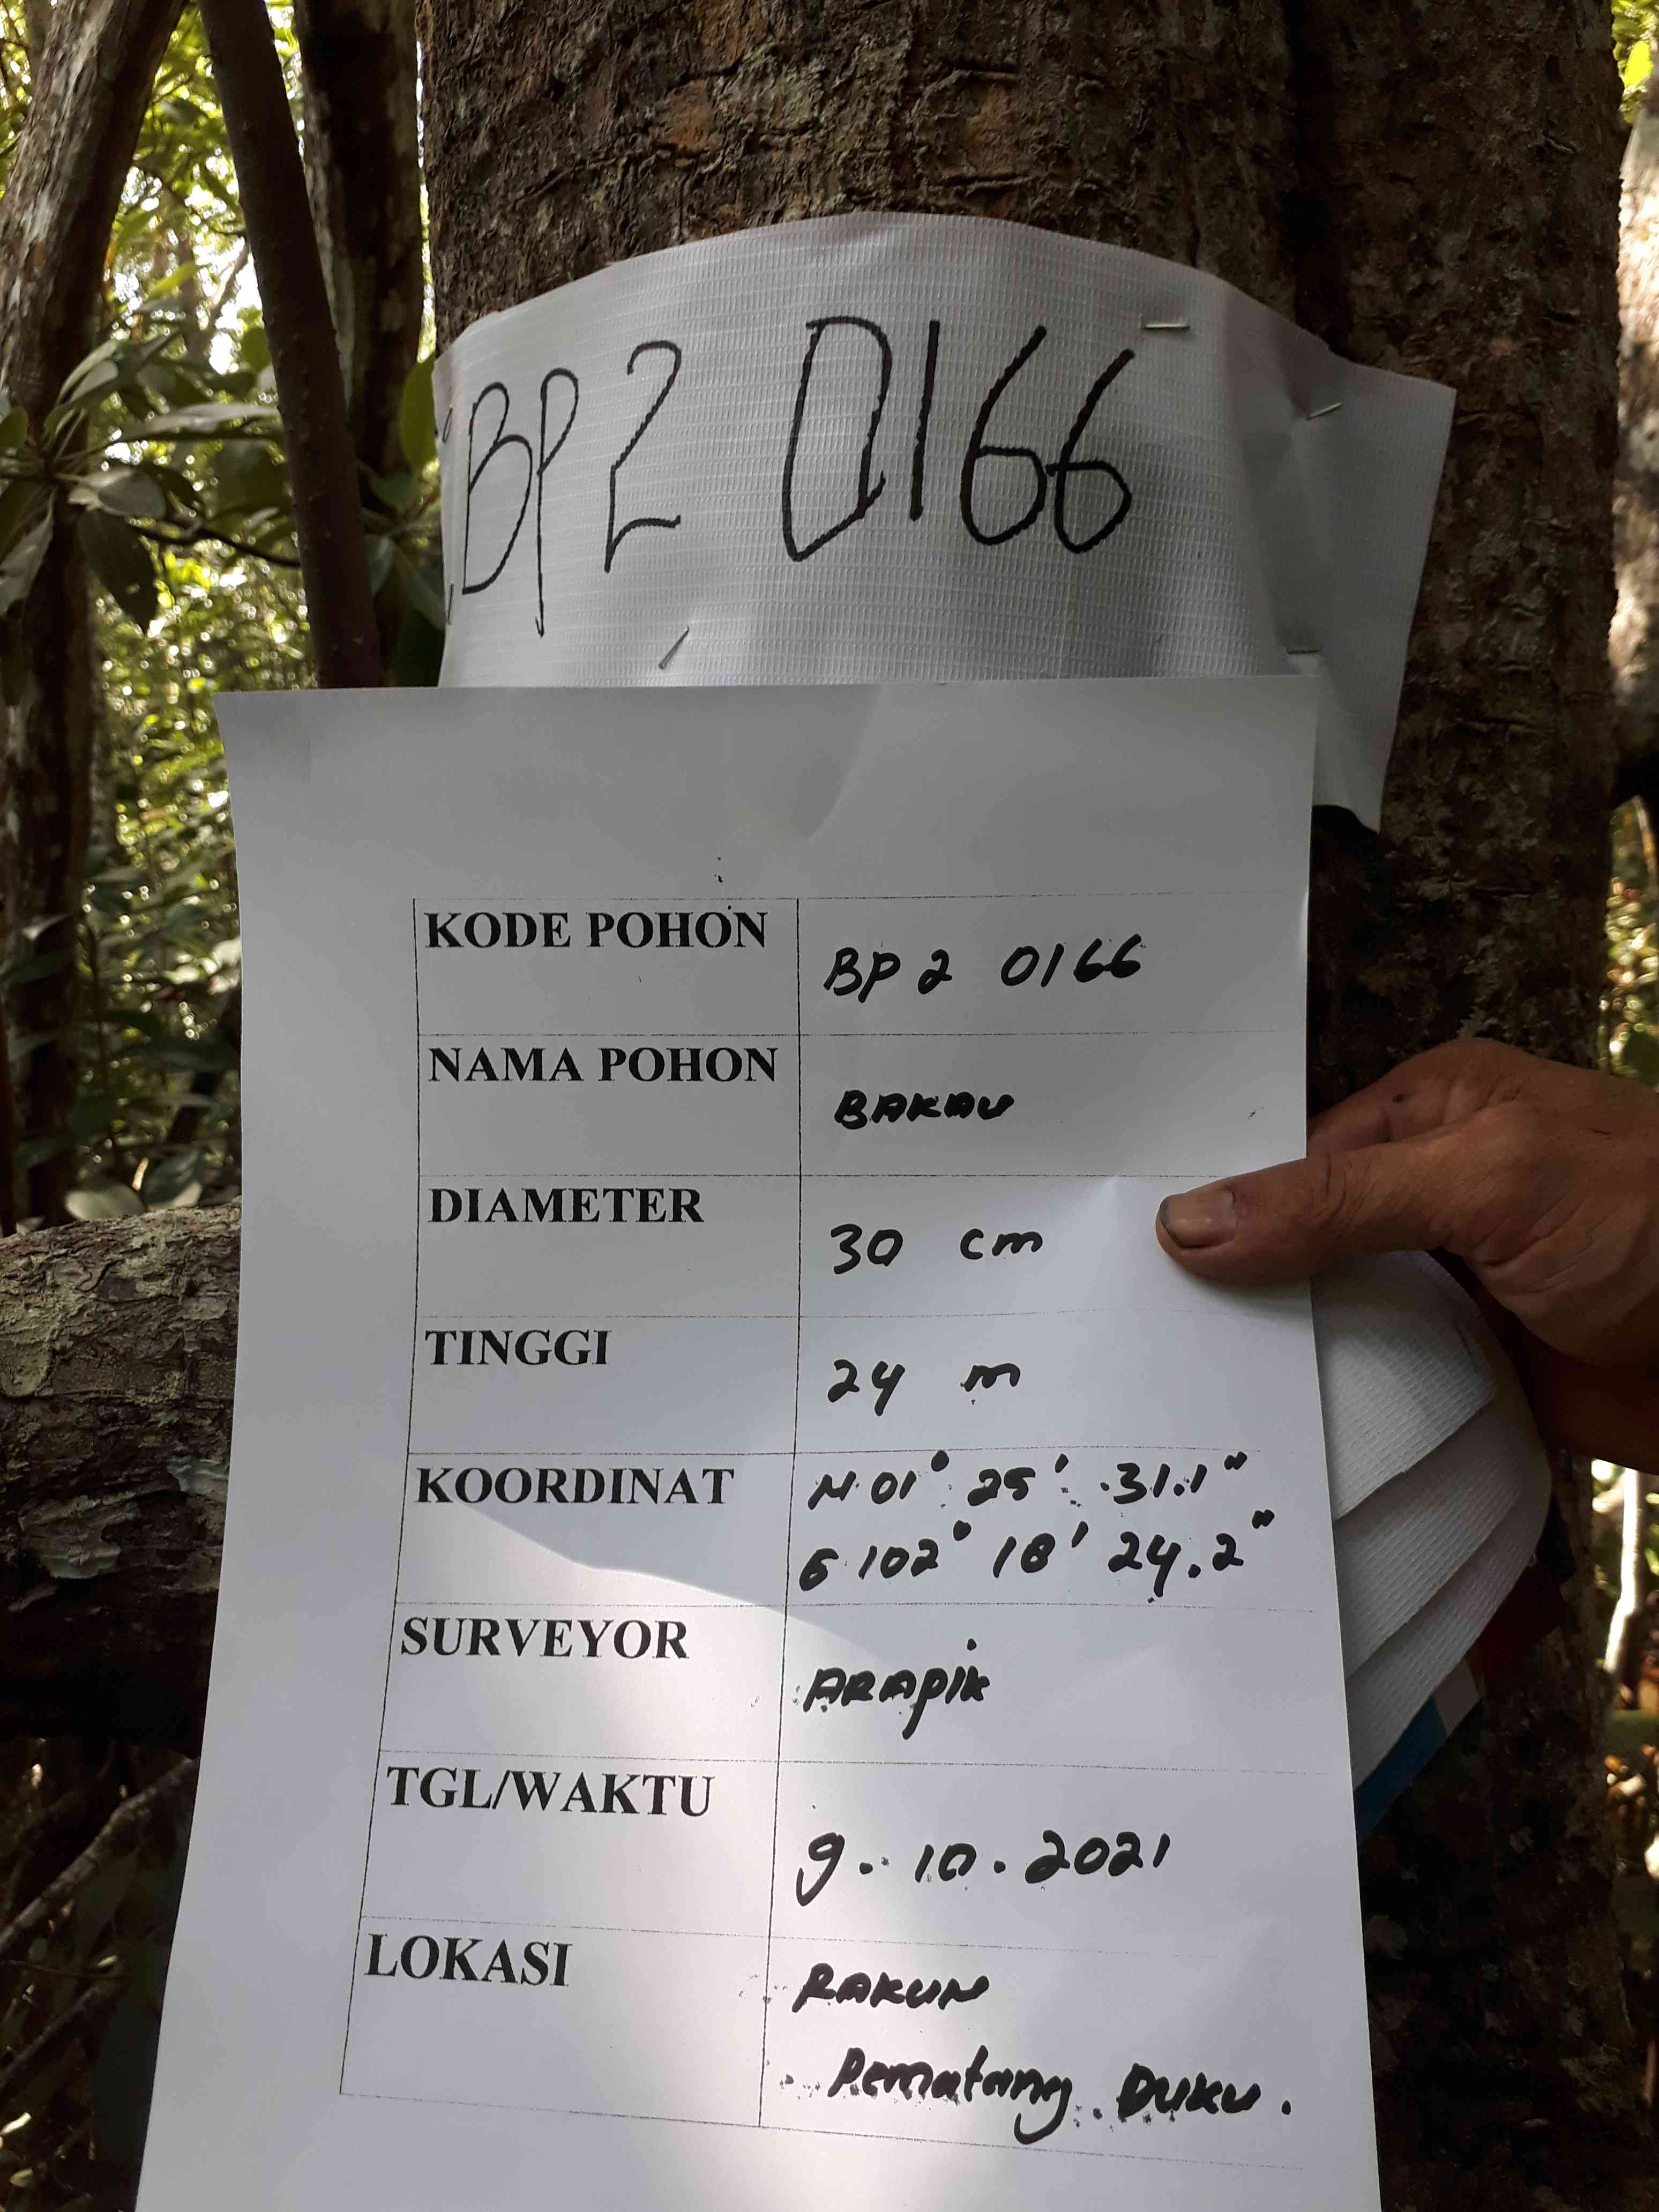 BP2 0166
KODE POHON
BP 2 0166
NAMA POHON
BAKAU
DIAMETER
30 cm
TINGGI
24 m
KOORDINAT
N 01° 25' 31.1"
E 102° 18' 24.2"
SURVEYOR
ARApik
TGL/WAKTU
9. 10. 2021
LOKASI
RAKUN
Pematang DUKU.